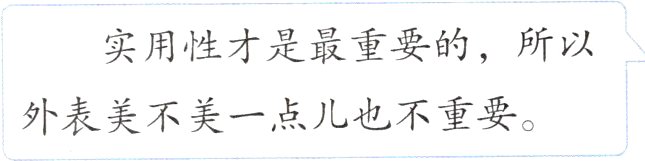 实用性才是最重要的，所以
外表美不美一点儿也不重要。